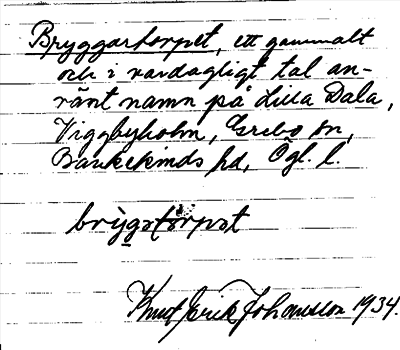 Bryggartorpet, ett gammalt
och i vardagligt tal an-
vänt namn på Lilla Dala,
Viggbyholm, Grebo sn,
Bankekinds hd, Ögl. l.
Knut Erik Johansson 1934.